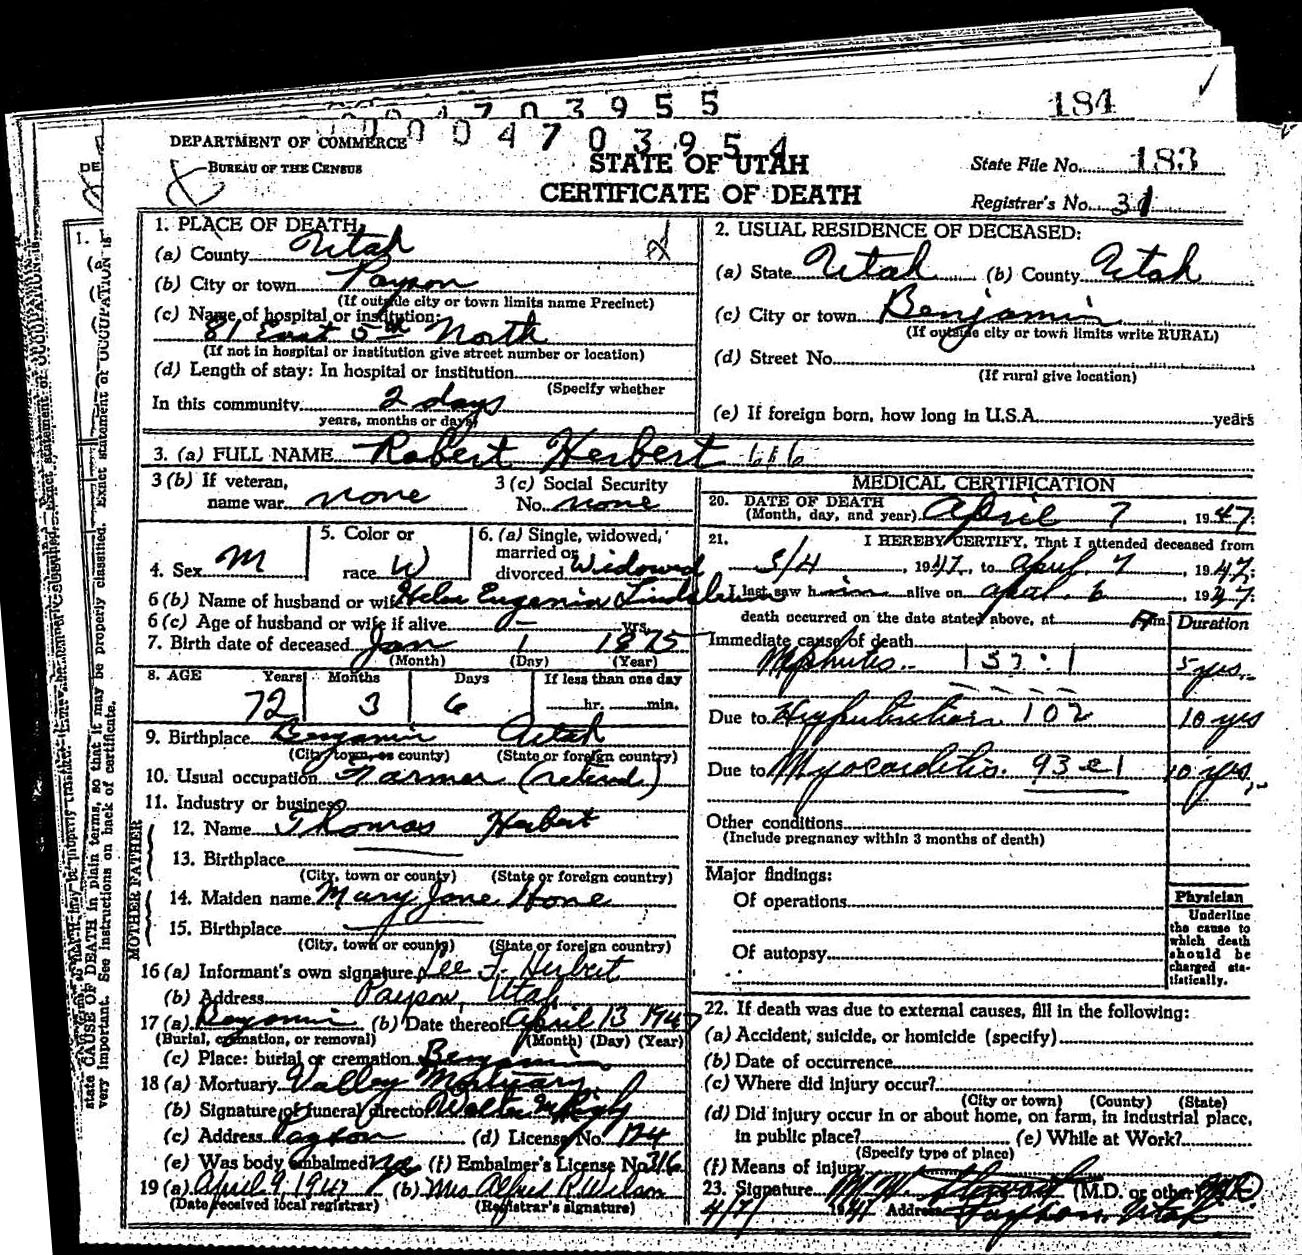 0004703955
184
DEPARTMENT OF COMMERCE
BUREAU OF THE CENSUS
0004703954
STATE OF UTAH
CERTIFICATE OF DEATH
State File No. 183
Registrar's No. 31
1. PLACE OF DEATH
(a) County Utah
(b) City or town Payson
(If outside city or town limits name Precinct)
(c) Name of hospital or institution:
81 East 5th North
(If not in hospital or institution give street number or location)
(d) Length of stay: In hospital or institution
(Specify whether
In this community 2 days
years, months or days)
2. USUAL RESIDENCE OF DECEASED:
(a) State Utah (b) County Utah
(c) City or town Benjamin
(If outside city or town limits write RURAL)
(d) Street No.
(If rural give location)
(e) If foreign born, how long in U.S.A. years
3. (a) FULL NAME Robert Herbert 616
3 (b) If veteran, name war none
3 (c) Social Security No. none
4. Sex M
5. Color or race W
6. (a) Single, widowed, married or divorced Widowed
6 (b) Name of husband or wife Helen Eugenia
6 (c) Age of husband or wife if alive — yrs.
7. Birth date of deceased Jan 1 1875
(Month) (Day) (Year)
8. AGE Years Months Days If less than one day
72 3 6 hr. min.
9. Birthplace Benjamin Utah
(City, town, or county) (State or foreign country)
10. Usual occupation Farmer (retired)
11. Industry or business
FATHER
12. Name Thomas Herbert
13. Birthplace
(City, town or county) (State or foreign country)
MOTHER
14. Maiden name Mary Jane Hone
15. Birthplace
(City, town or county) (State or foreign country)
16 (a) Informant's own signature Lee T. Herbert
(b) Address Payson, Utah
17 (a) Benjamin (b) Date thereof April 13 1947
(Burial, cremation, or removal) (Month) (Day) (Year)
(c) Place: burial or cremation Benjamin
18 (a) Mortuary Valley Mortuary
(b) Signature of funeral director
(c) Address Payson (d) License No. 124
(e) Was body embalmed? yes (f) Embalmer's License No. 316
19 (a) April 9, 1947 (b) Mrs Alfred R Wilson
(Date received local registrar) (Registrar's signature)
MEDICAL CERTIFICATION
20. DATE OF DEATH
(Month, day, and year) April 7, 1947.
21. I HEREBY CERTIFY, That I attended deceased from
3/4, 1947, to April 7, 1947;
I last saw him alive on April 6, 1947;
death occurred on the date stated above, at A m. Duration
Immediate cause of death
Nephritis 131.1 5 yrs.
Due to Hypertension 102 10 yrs
Due to Myocarditis 93 e 1 10 yrs.
Other conditions
(Include pregnancy within 3 months of death)
Major findings:
Of operations
Of autopsy
Physician
Underline
the cause to
which death
should be
charged sta-
tistically.
22. If death was due to external causes, fill in the following:
(a) Accident, suicide, or homicide (specify)
(b) Date of occurrence
(c) Where did injury occur?
(City or town) (County) (State)
(d) Did injury occur in or about home, on farm, in industrial place,
in public place? (e) While at Work?
(Specify type of place)
(f) Means of injury
23. Signature Stewart (M.D. or other)
4/7/ 1947 Address Payson, Utah
state CAUSE OF DEATH in plain terms, so that it may be properly classified. Exact statement of OCCUPATION is
very important. See instructions on back of certificate.